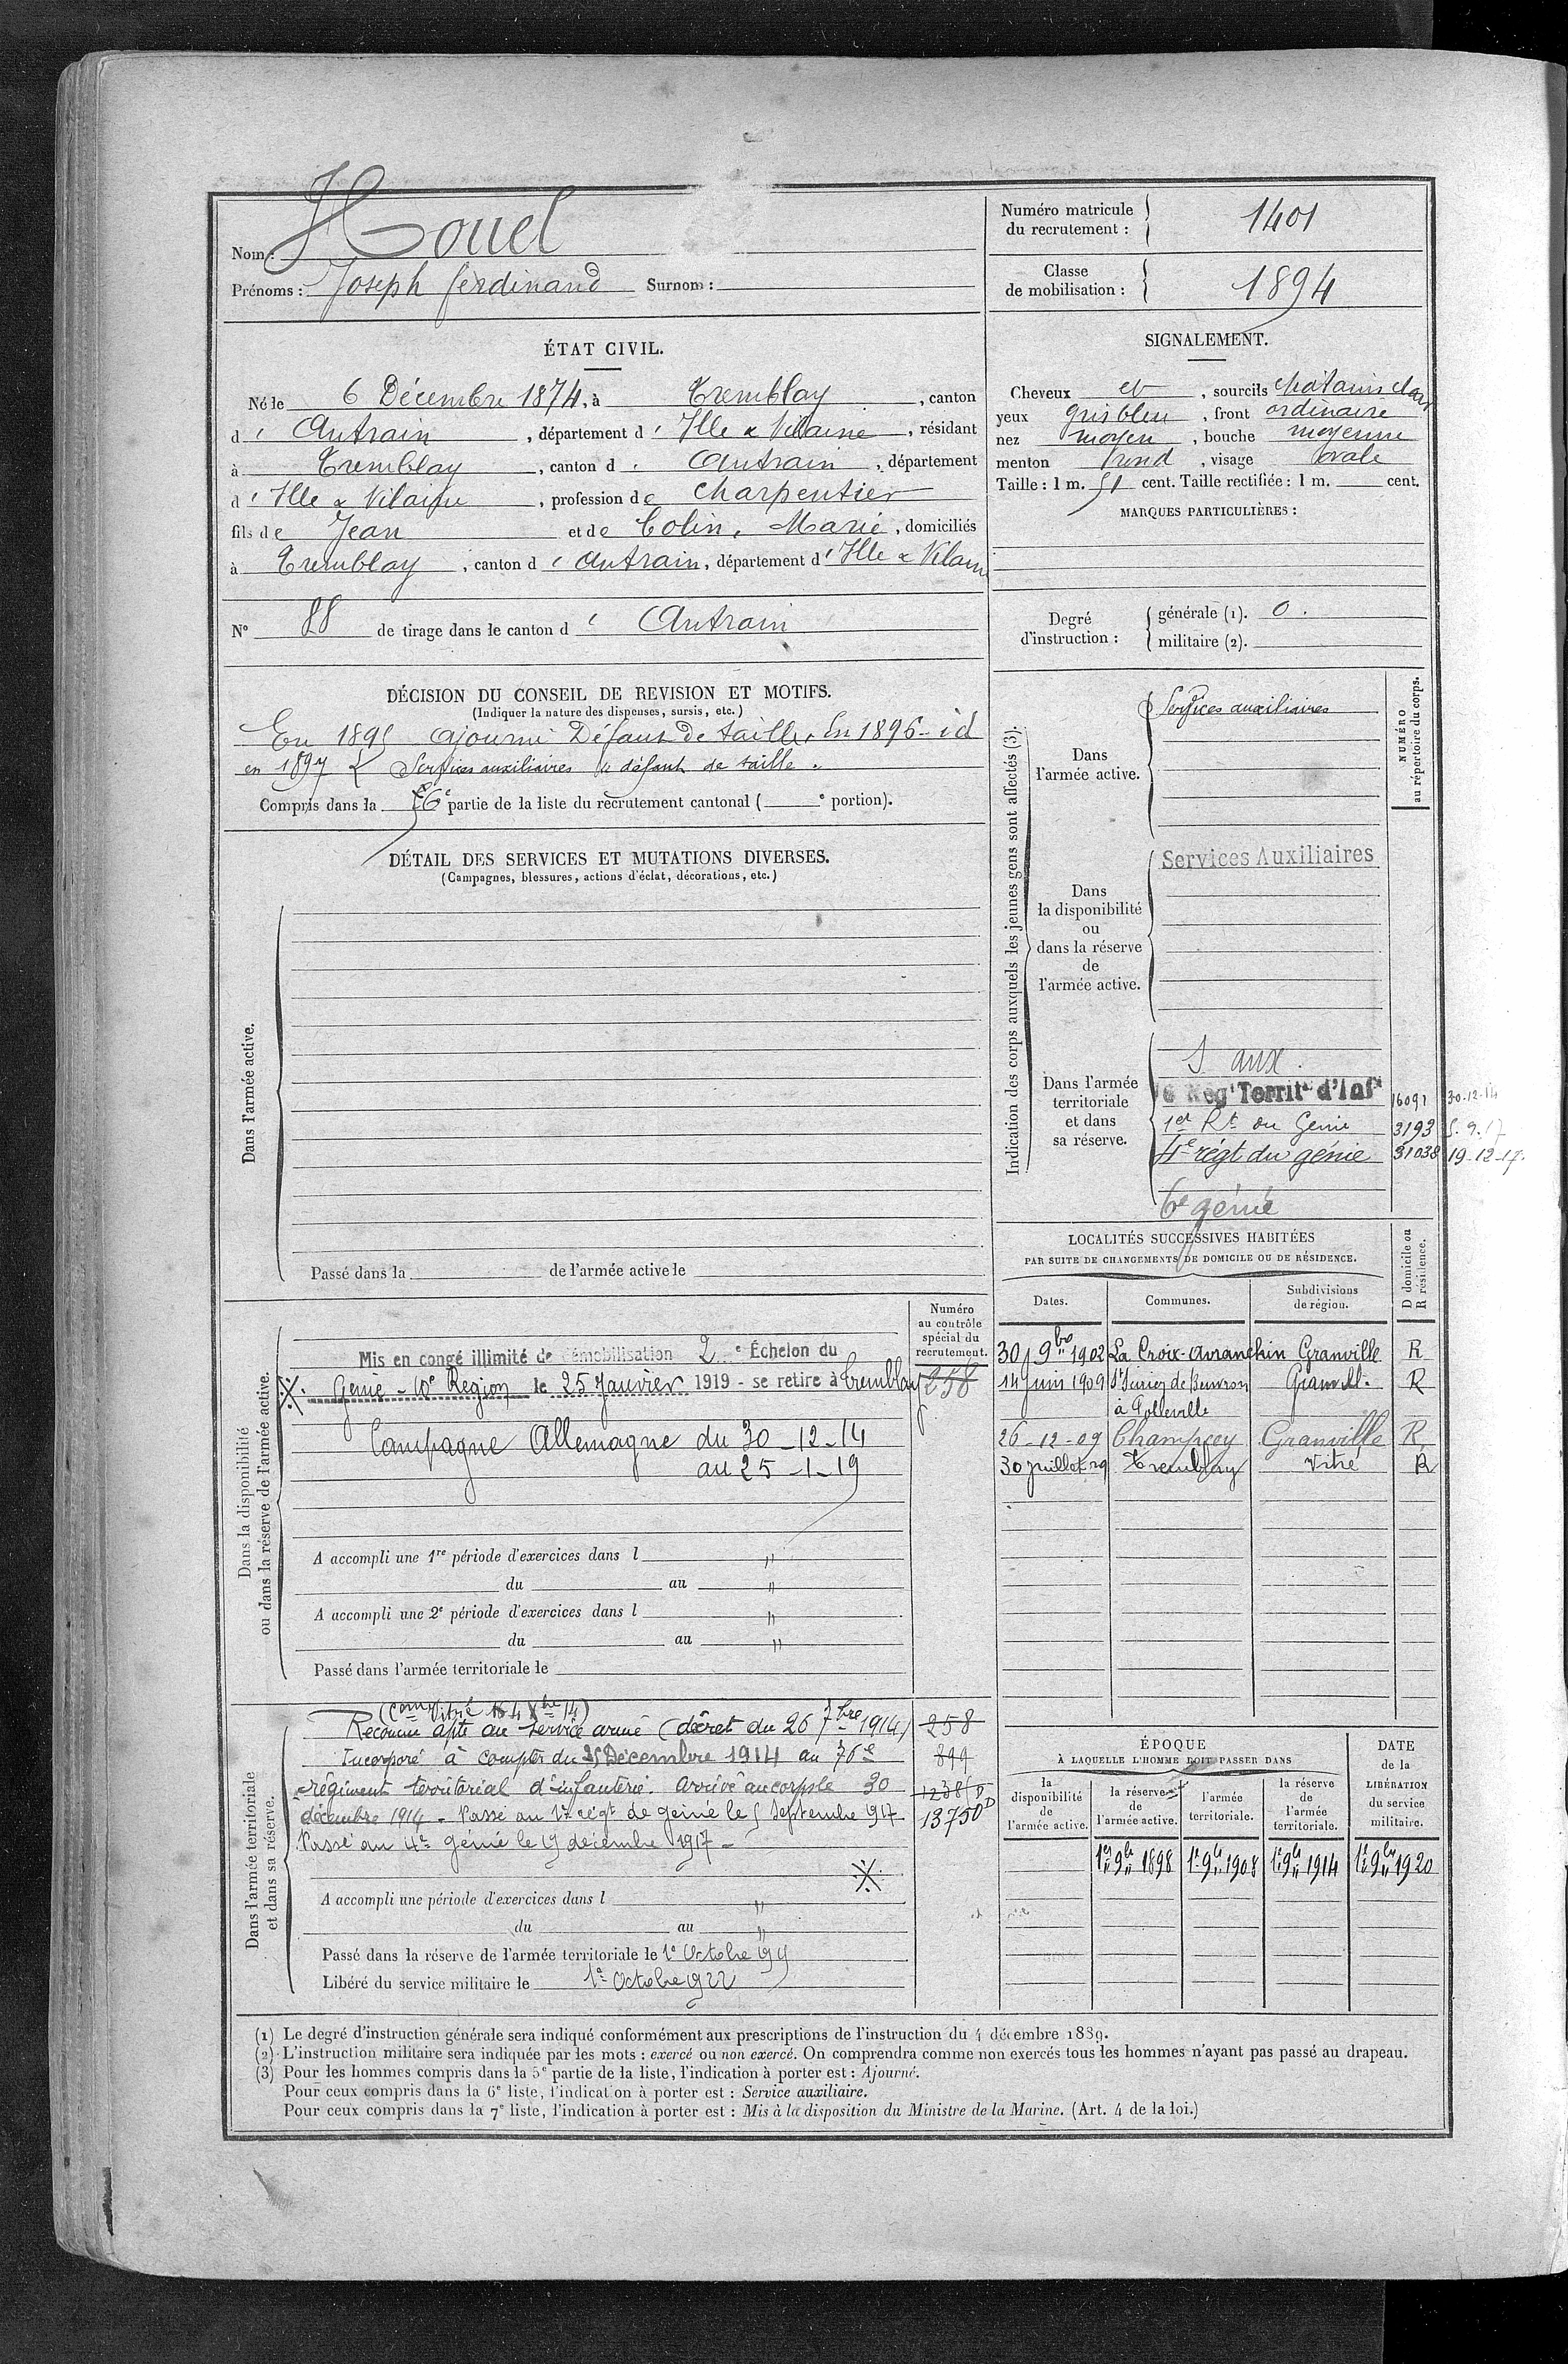 Nom : Houel
Prénoms : Joseph ferdinand Surnom :
Numéro matricule du recrutement : 1401
Classe de mobilisation : 1894
ÉTAT CIVIL.
Né le 6 Décembre 1874, à Tremblay, canton
d' Antrain, département d' Ille & Vilaine, résidant
à Tremblay, canton d' Antrain, département
d' Ille & Vilaine, profession de charpentier
fils de Jean et de Colin, Marie, domiciliés
à Tremblay, canton d' Antrain, département d' Ille & Vilaine
N° 88 de tirage dans le canton d' Antrain
SIGNALEMENT.
Cheveux et, sourcils châtains clairs
yeux gris bleu, front ordinaire
nez moyen, bouche moyenne
menton rond, visage ovale
Taille : 1 m. 51 cent. Taille rectifiée : 1 m. cent.
MARQUES PARTICULIÈRES :
Degré d'instruction :
générale (1). 0.
militaire (2).
DÉCISION DU CONSEIL DE REVISION ET MOTIFS.
(Indiquer la nature des dispenses, sursis, etc.)
En 1895 ajourné Défaut de taille. En 1896 - id
en 1897 Services auxiliaires défaut de taille.
Compris dans la 6e partie de la liste du recrutement cantonal ( e portion).
DÉTAIL DES SERVICES ET MUTATIONS DIVERSES.
(Campagnes, blessures, actions d'éclat, décorations, etc.)
Dans l'armée active.
Passé dans la de l'armée active le
Indication des corps auxquels les jeunes gens sont affectés (3).
NUMÉRO au répertoire du corps.
Dans l'armée active.
Services auxiliaires
Dans la disponibilité ou dans la réserve de l'armée active.
Services Auxiliaires
Dans l'armée territoriale et dans sa réserve.
S aux.
6 Reg't Territ'l d'Inf'ie 16091 30-12-14
1er Rt du Génie 3193 5.9.17
4e régt du génie 31038 19-12-17.
6e génie
LOCALITÉS SUCCESSIVES HABITÉES
PAR SUITE DE CHANGEMENTS DE DOMICILE OU DE RÉSIDENCE.
D domicile ou R résidence.
Dates. Communes. Subdivisions de région.
30 9bre 1902 La Croix-Avranchin Granville R
14 juin 1909 St Senier de Beuvron Granvll. R
à Golleville
26-12-09 Champcey Granville R
30 juillet 29 Tremblay Vitré R
Dans la disponibilité ou dans la réserve de l'armée active.
Numéro au contrôle spécial du recrutement.
Mis en congé illimité de démobilisation 2e Échelon du
Génie - 10e Région le 25 Janvier 1919 - se retire à Tremblay 258
Campagne Allemagne du 30-12-14
au 25-1-19
A accompli une 1re période d'exercices dans l "
du au "
A accompli une 2e période d'exercices dans l "
du au "
Passé dans l'armée territoriale le
Dans l'armée territoriale et dans sa réserve.
(Com Vitré 4 Xbre 14)
Reconnu apte au service armé (décret du 26 7bre 1914) 258
Incorporé à compter du Décembre 1914 au 76e 899
régiment territorial d'infanterie. arrivé au corps le 30
décembre 1914 - Passé au 1er régt de génie le 5 Septembre 1917 13750D
Passé au 4e génie le 19 décembre 1917 -
A accompli une période d'exercices dans l "
du au "
Passé dans la réserve de l'armée territoriale le 1er Octobre 1915
Libéré du service militaire le 1er Octobre 1922
ÉPOQUE
À LAQUELLE L'HOMME DOIT PASSER DANS
DATE de la LIBÉRATION du service militaire.
la disponibilité de l'armée active.
la réserve de l'armée active.
l'armée territoriale.
la réserve de l'armée territoriale.
1er 9bre 1898 1er 9bre 1908 1er 9bre 1914 1er 9bre 1920
(1) Le degré d'instruction générale sera indiqué conformément aux prescriptions de l'instruction du 4 décembre 1889.
(2) L'instruction militaire sera indiquée par les mots : exercé ou non exercé. On comprendra comme non exercés tous les hommes n'ayant pas passé au drapeau.
(3) Pour les hommes compris dans la 5e partie de la liste, l'indication à porter est : Ajourné.
Pour ceux compris dans la 6e liste, l'indication à porter est : Service auxiliaire.
Pour ceux compris dans la 7e liste, l'indication à porter est : Mis à la disposition du Ministre de la Marine. (Art. 4 de la loi.)